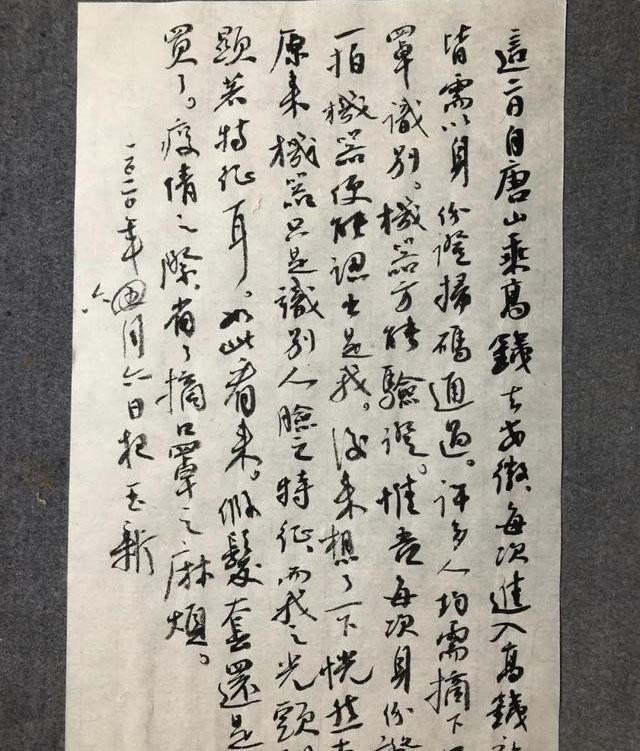 這二日自唐山乘高鐵去安徽，每次進入高鐵站
皆需以身份證掃碼通過。許多人均需摘下
罩識別，機器方能驗證。惟吾每次身份證
一拍機器便能認出是我。後來想了一下恍然
原来機器只是識別人臉之特征，而我之光頭
顯著特征耳。如此看来。假髮套還是
買了。疫情之際省了摘口罩之麻煩。
二〇二〇年四月六日 玉新
六